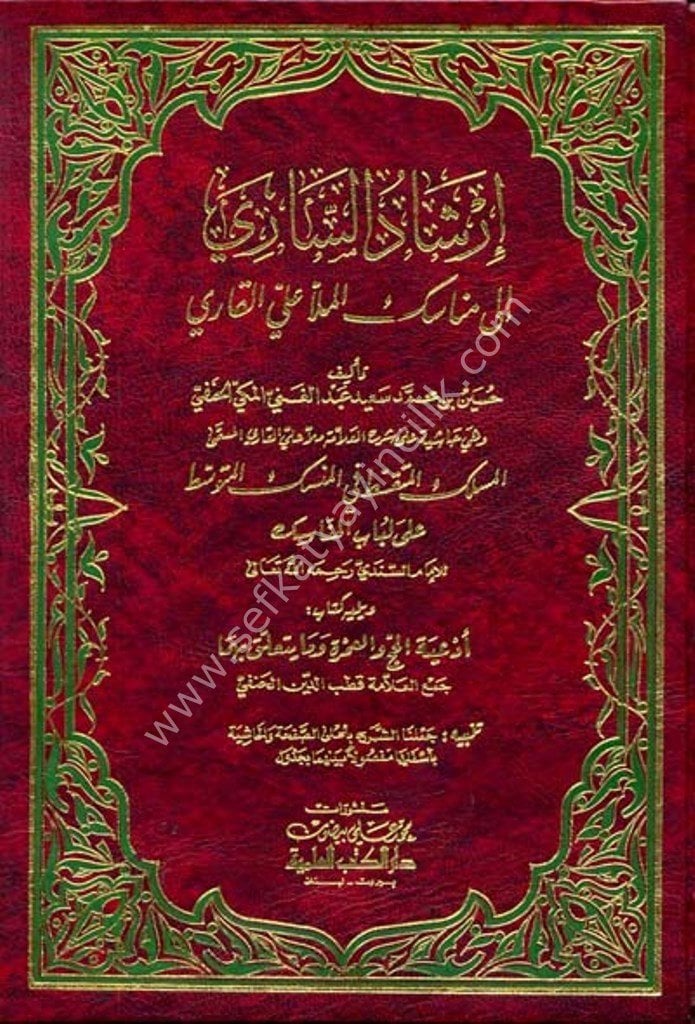 إرشاد الساري
إلى مناسك الملا علي القاري
تأليف
حسين بن محمد سعيد عبد الغني المكي الحنفي
وهي حاشية على شرح العلامة ملا علي القاري المسمى
المسلك المتقسط في المنسك المتوسط
على لباب المناسك
للإمام السندي رحمه الله تعالى
ويليه كتاب:
أدعية الحج والعمرة وما يتعلق بهما
جمع العلامة قطب الدين الحنفي
تنبيه: جعلنا الشرح بأعلى الصفحة والحاشية
بأسفلها مفصولاً بينهما بجدول
منشورات
محمد علي بيضون
دار الكتب العلمية
بيروت - لبنان
www.sefkatyayincilik.com